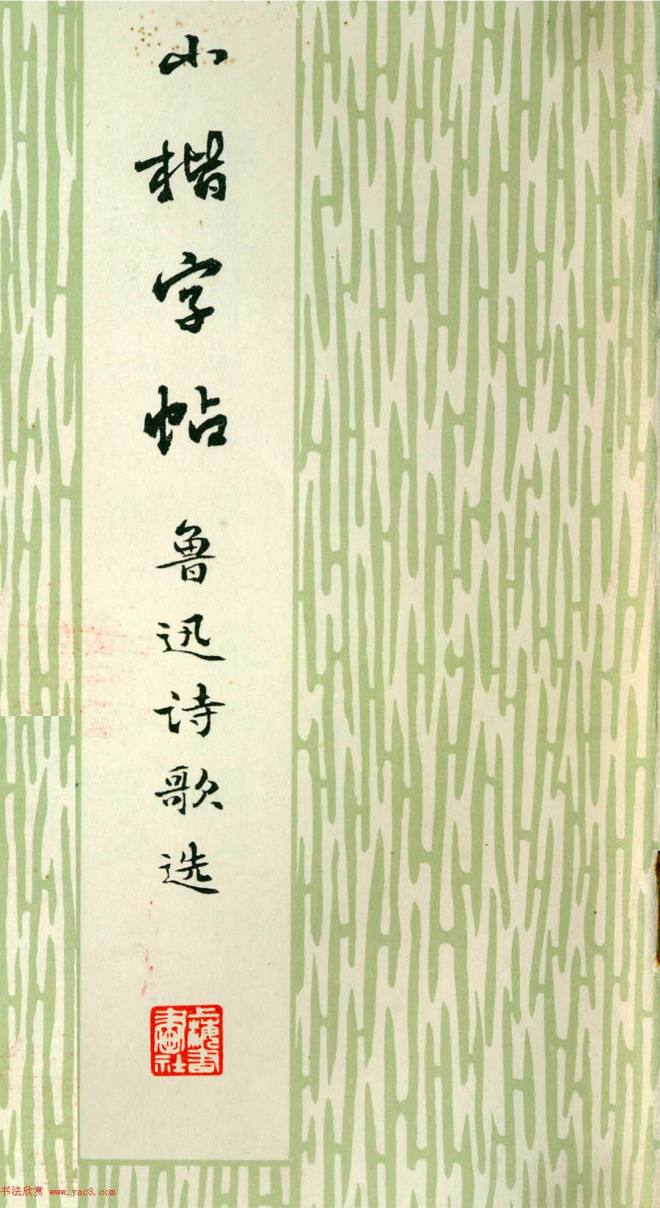 小楷字帖 鲁迅诗歌选
上海书
画社
书法欣赏 www.yac8.com